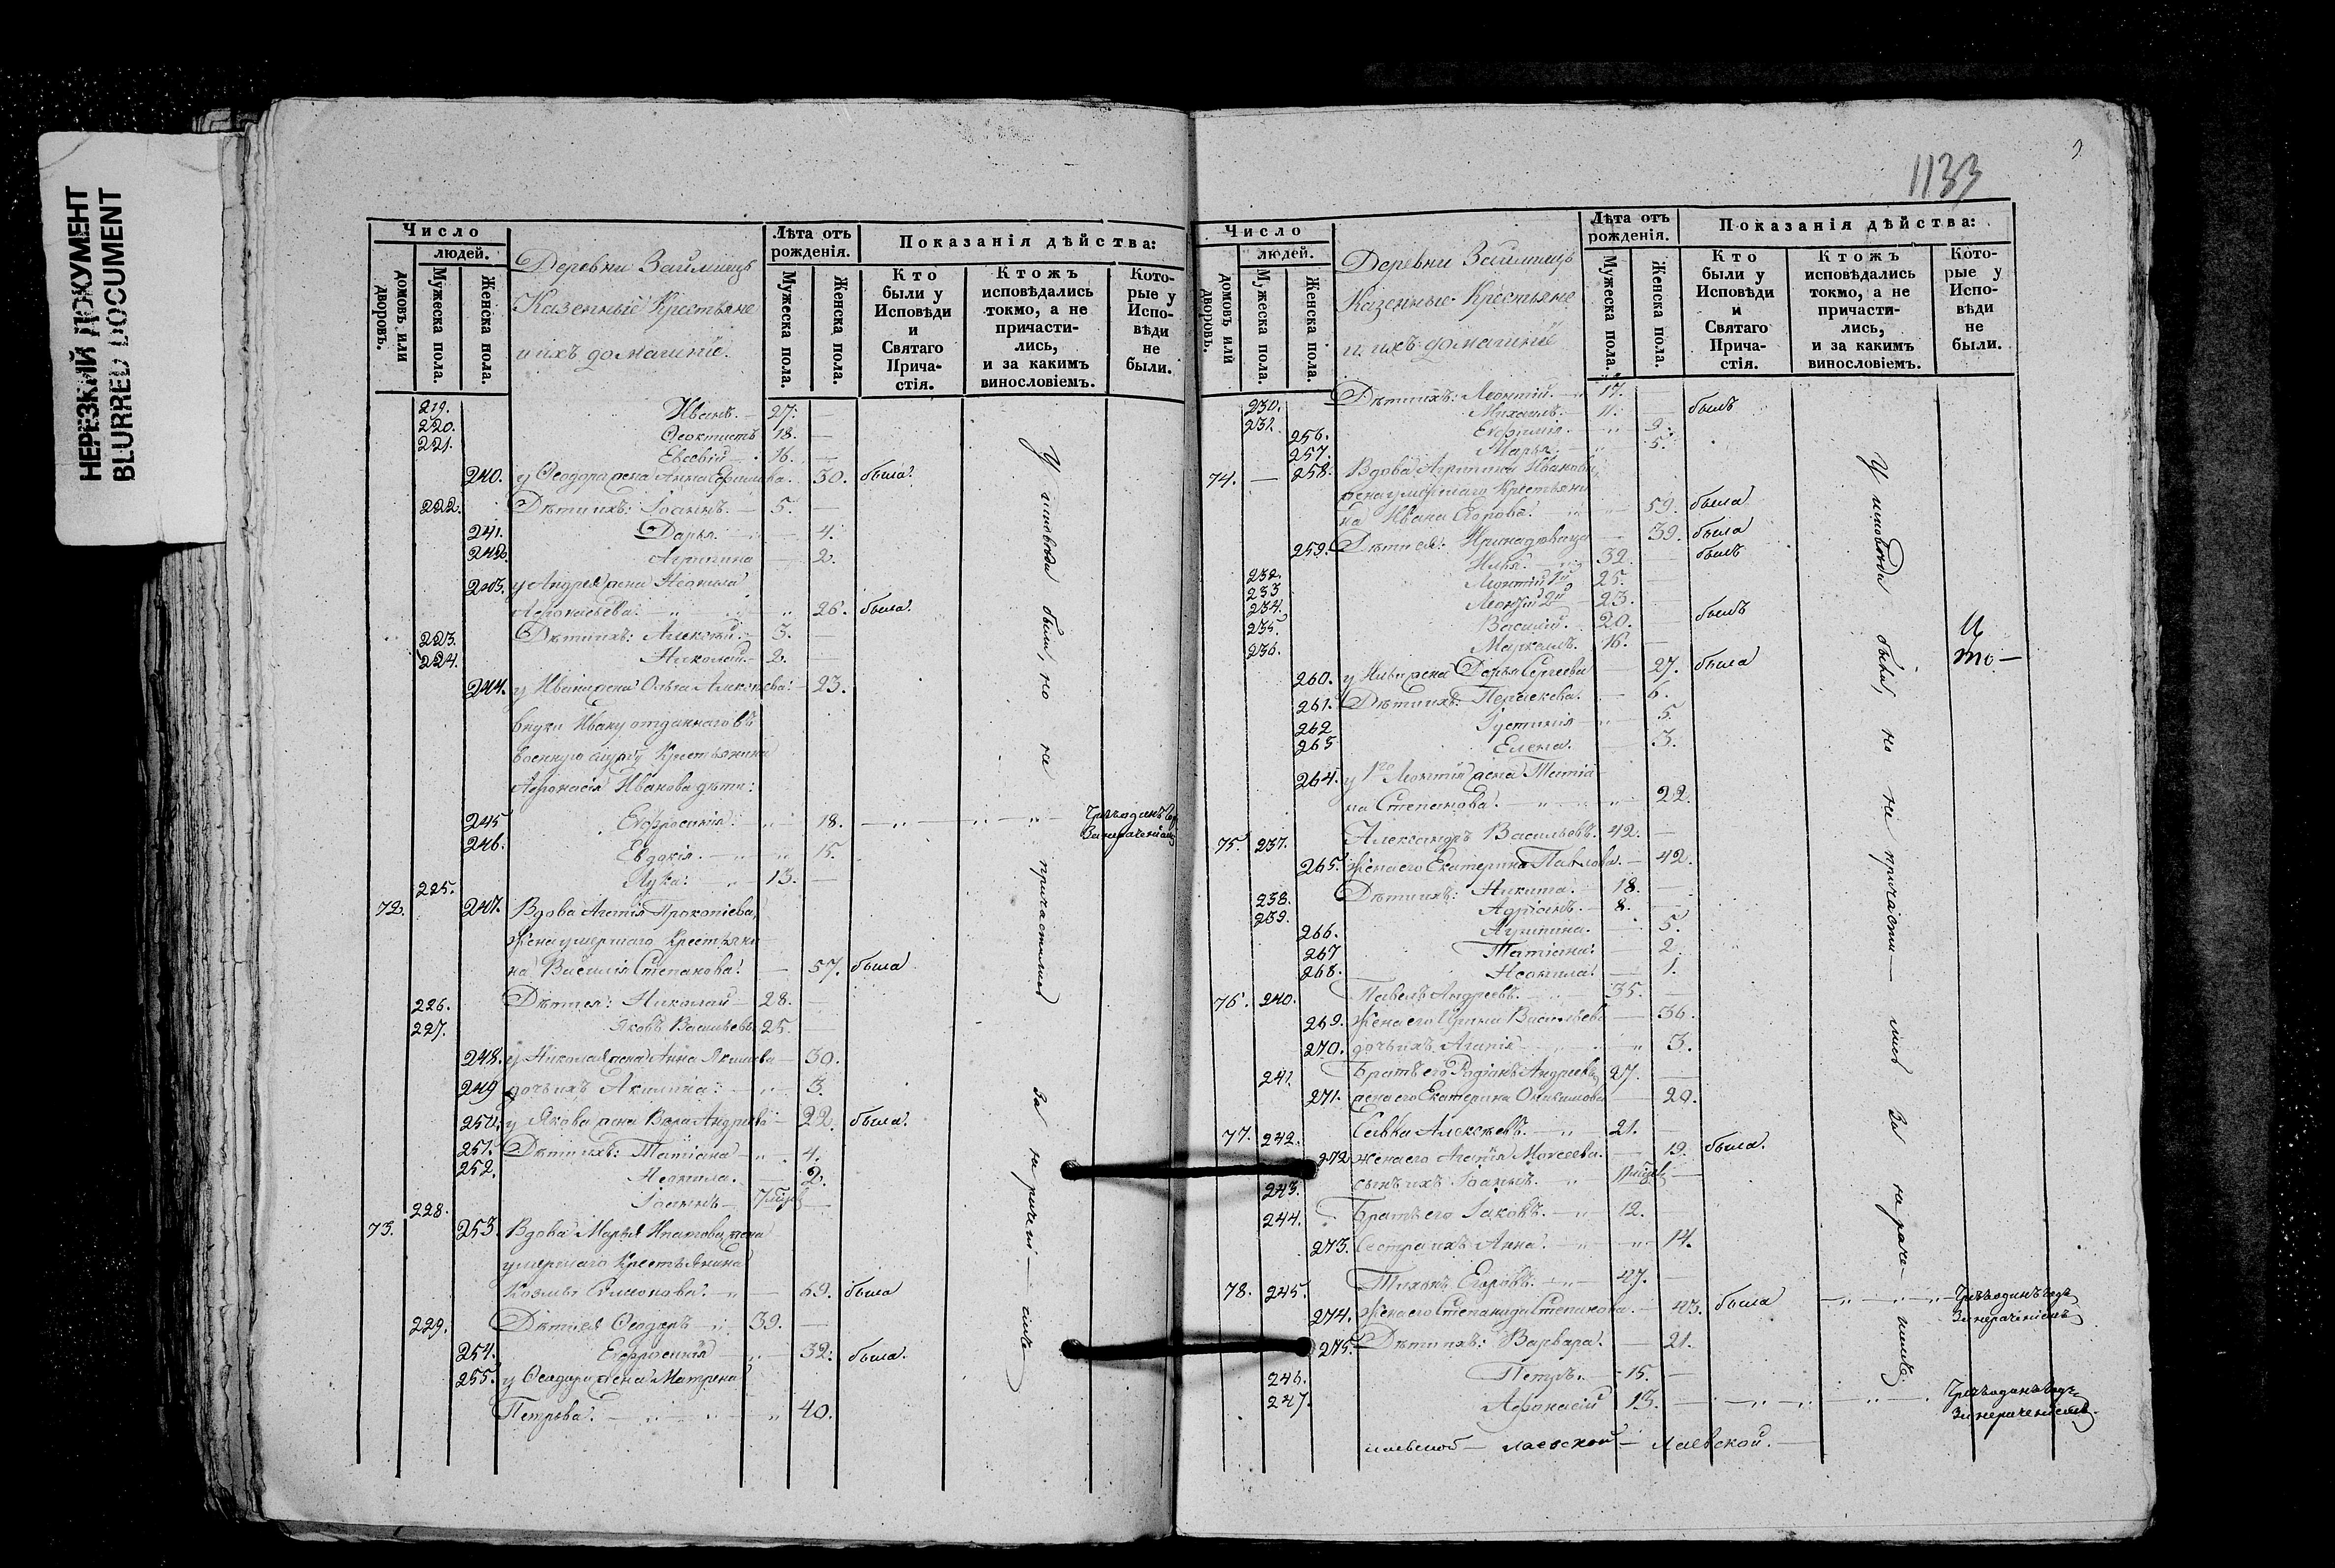 НЕРЕЗКИЙ ДОКУМЕНТ
BLURRED DOCUMENT
Число
людей.
домовъ или дворовъ.
Мужеска пола.
Женска пола.
Деревни Займищъ
Казенные Крестьяне
и ихъ домашніе.
Лѣта отъ рожденія.
Мужеска пола.
Женска пола.
Показанія дѣйства:
Кто были у Исповѣди и Святаго Причастія.
Ктожъ исповѣдались токмо, а не причастились, и за какимъ винословіемъ.
Которые у Исповѣди не были.
219. Иванъ. 27.
220. Ѳеоктистъ 18.
221. Евсевій 16.
240. у Ѳеодора жена Анна 30. была.
222. Дѣти ихъ: Іоаннъ. 5.
241. Дарья. 4.
242. Агрипина 2.
243. у Андрея жена Неонила
Афонасьева. 26. была.
223. Дѣти ихъ: Алексѣй. 3.
224. Николай. 2.
244. у Ивана жена Ольга Алексѣева. 23.
внуки Ивану отданнаго въ
военную службу Крестьянина
Афонасія Иванова дѣти:
245 Евфросинія. 18.
246. Евдокія. 15.
225. Лука. 13.
72. 247. Вдова Агапія Прокопіева,
жена умершаго Крестьяни
на Василія Степанова. 57. была
226. Дѣти ея: Николай 28.
227. Яковъ Васильевъ 25.
248. у Николая жена Анна 30.
249 дочь ихъ Акилина. 3.
250. у Якова жена Вера Андреева 22. была.
251. Дѣти ихъ: Татіана 4.
252. Неонила. 2.
228. Іоаннъ
73. 253. Вдова Марья Ипатова, жена
умершаго Крестьянина
Козмы Симонова. 69. была
229. Дѣти ея Ѳеодоръ 39.
254. Евфросинія 32. была.
255. у Ѳеодора жена Матрена
Петрова. 40.
У исповѣди были, но не причастились за нерачені
1133
Число
людей.
домовъ или дворовъ.
Мужеска пола.
Женска пола.
Деревни Займищъ
Казенные Крестьяне
и ихъ домашніе
Лѣта отъ рожденія.
Мужеска пола.
Женска пола.
Показанія дѣйства:
Кто были у Исповѣди и Святаго Причастія.
Ктожъ исповѣдались токмо, а не причастились, и за какимъ винословіемъ.
Которые у Исповѣди не были.
230. Дѣти ихъ: Леонтій. 17.
231. Михаилъ. 11. былъ
256. Евфимія. 9.
257. Марья. 5.
74. 258. Вдова Агрипина Иванова,
жена умершаго Крестьяни
на Ивана Егорова. 59. была
259. Дѣти ея: 39. была
232. Илья. 32. былъ
233 Леонтій 1й 25.
234. Леонтій 2й 23.
235. Василій. 20. былъ
236. Маркелъ. 16.
260. у Ильи жена Дарья Сергеева 27. была
261. Дѣти ихъ: Параскева. 6.
262 Іустинія 5.
263 Елена. 3.
264. у 1го Леонтія жена Татіа
на Степанова. 22.
75. 237. Александръ Васильевъ. 42.
265. Жена его Екатерина Павлова. 42.
238. Дѣти ихъ: Никита. 18.
239. Адріанъ. 8.
266. Агрипина. 5.
267 Татіана. 2.
268. Неонила. 1.
76. 240. Павелъ Андреевъ. 35.
269. Жена его Ирина Васильева 36.
270. дочь ихъ Агапія 3.
241. Братъ его Родіонъ Андреевъ 27.
271. жена его Екатерина 20.
77. 242. Савва Алексѣевъ. 21.
272 жена его Агапія Моисеева. 19. была.
243. сынъ ихъ Іоаннъ.
244. Братъ его Іаковъ. 12.
273. Сестра ихъ Анна. 14.
78. 245. Тихонъ Егоровъ. 47.
274. Жена его Степанида Степанова. 43. была
275. Дѣти ихъ: Варвара. 21.
246. Петръ. 15.
247. Афонасій 13.
У исповѣди были, но не причастились за нераче